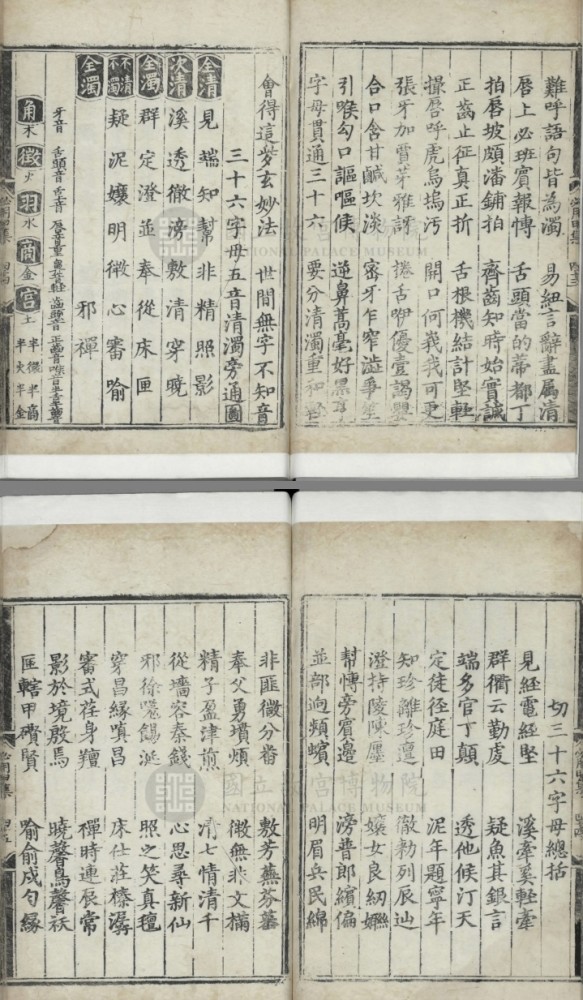 難呼語句皆為濁 易紐言辭盡屬清
唇上必班賓報博 舌頭當的蒂都丁
拍唇坡頗潘鋪拍 齊齒知時始實誠
正齒止征真正折 舌根機結計堅輕
撮唇呼虎烏塢汚 開口何我我可更
張牙加賈芽雅訝 捲舌咿優壹謁嬰
合口含甘鹹坎淡 窄牙乍窄澁爭笙
引喉勾口謳嘔候 逆鼻蒿毫好黑
字母貫通三十六 要分清濁重和
會得這些玄妙法 世間無字不知音
三十六字母五音清濁旁通圖
全清 見端知幫非精照影
次清 溪透徹滂敷清穿曉
全濁 群定澄並奉從床匣
不清不濁 疑泥孃明微心審喻
全濁 邪禪
牙音 舌頭音 舌上音 唇音重 唇音輕 齒頭音 正齒音 喉音 半舌半齒
角木 徵火 羽水 商金 宮土 半徵半商 半火半金
國立故宮博物院
NATIONAL PALACE MUSEUM
切三十六字母總括
見經電經堅 溪牽奚輕牽
群衢云勤虔 疑魚其銀言
端多官丁顛 透他候汀天
定徒徑庭田 泥年題寧年
知珍離珍邅 徹勑列辰辿
澄持陵陳廛 孃女良紉嬿
幫博旁賓邊 滂普郎繽偏
並部迥頻蠙 明眉兵民綿
非匪微分番 敷芳蕪芬蕃
奉父勇墳煩 微無非文樠
精子盈津煎 清七情清千
從墻容秦錢 心思尋新仙
邪徐嗟餳涎 照之笑真氊
穿昌緣嗔昌 床仕莊榛潺
審式荏身羶 禪時連辰常
影於境殷焉 曉馨鳥馨袄
匣轄甲礥賢 喻俞戍勻緣
國立故宮博物院
NATIONAL PALACE MUSEUM